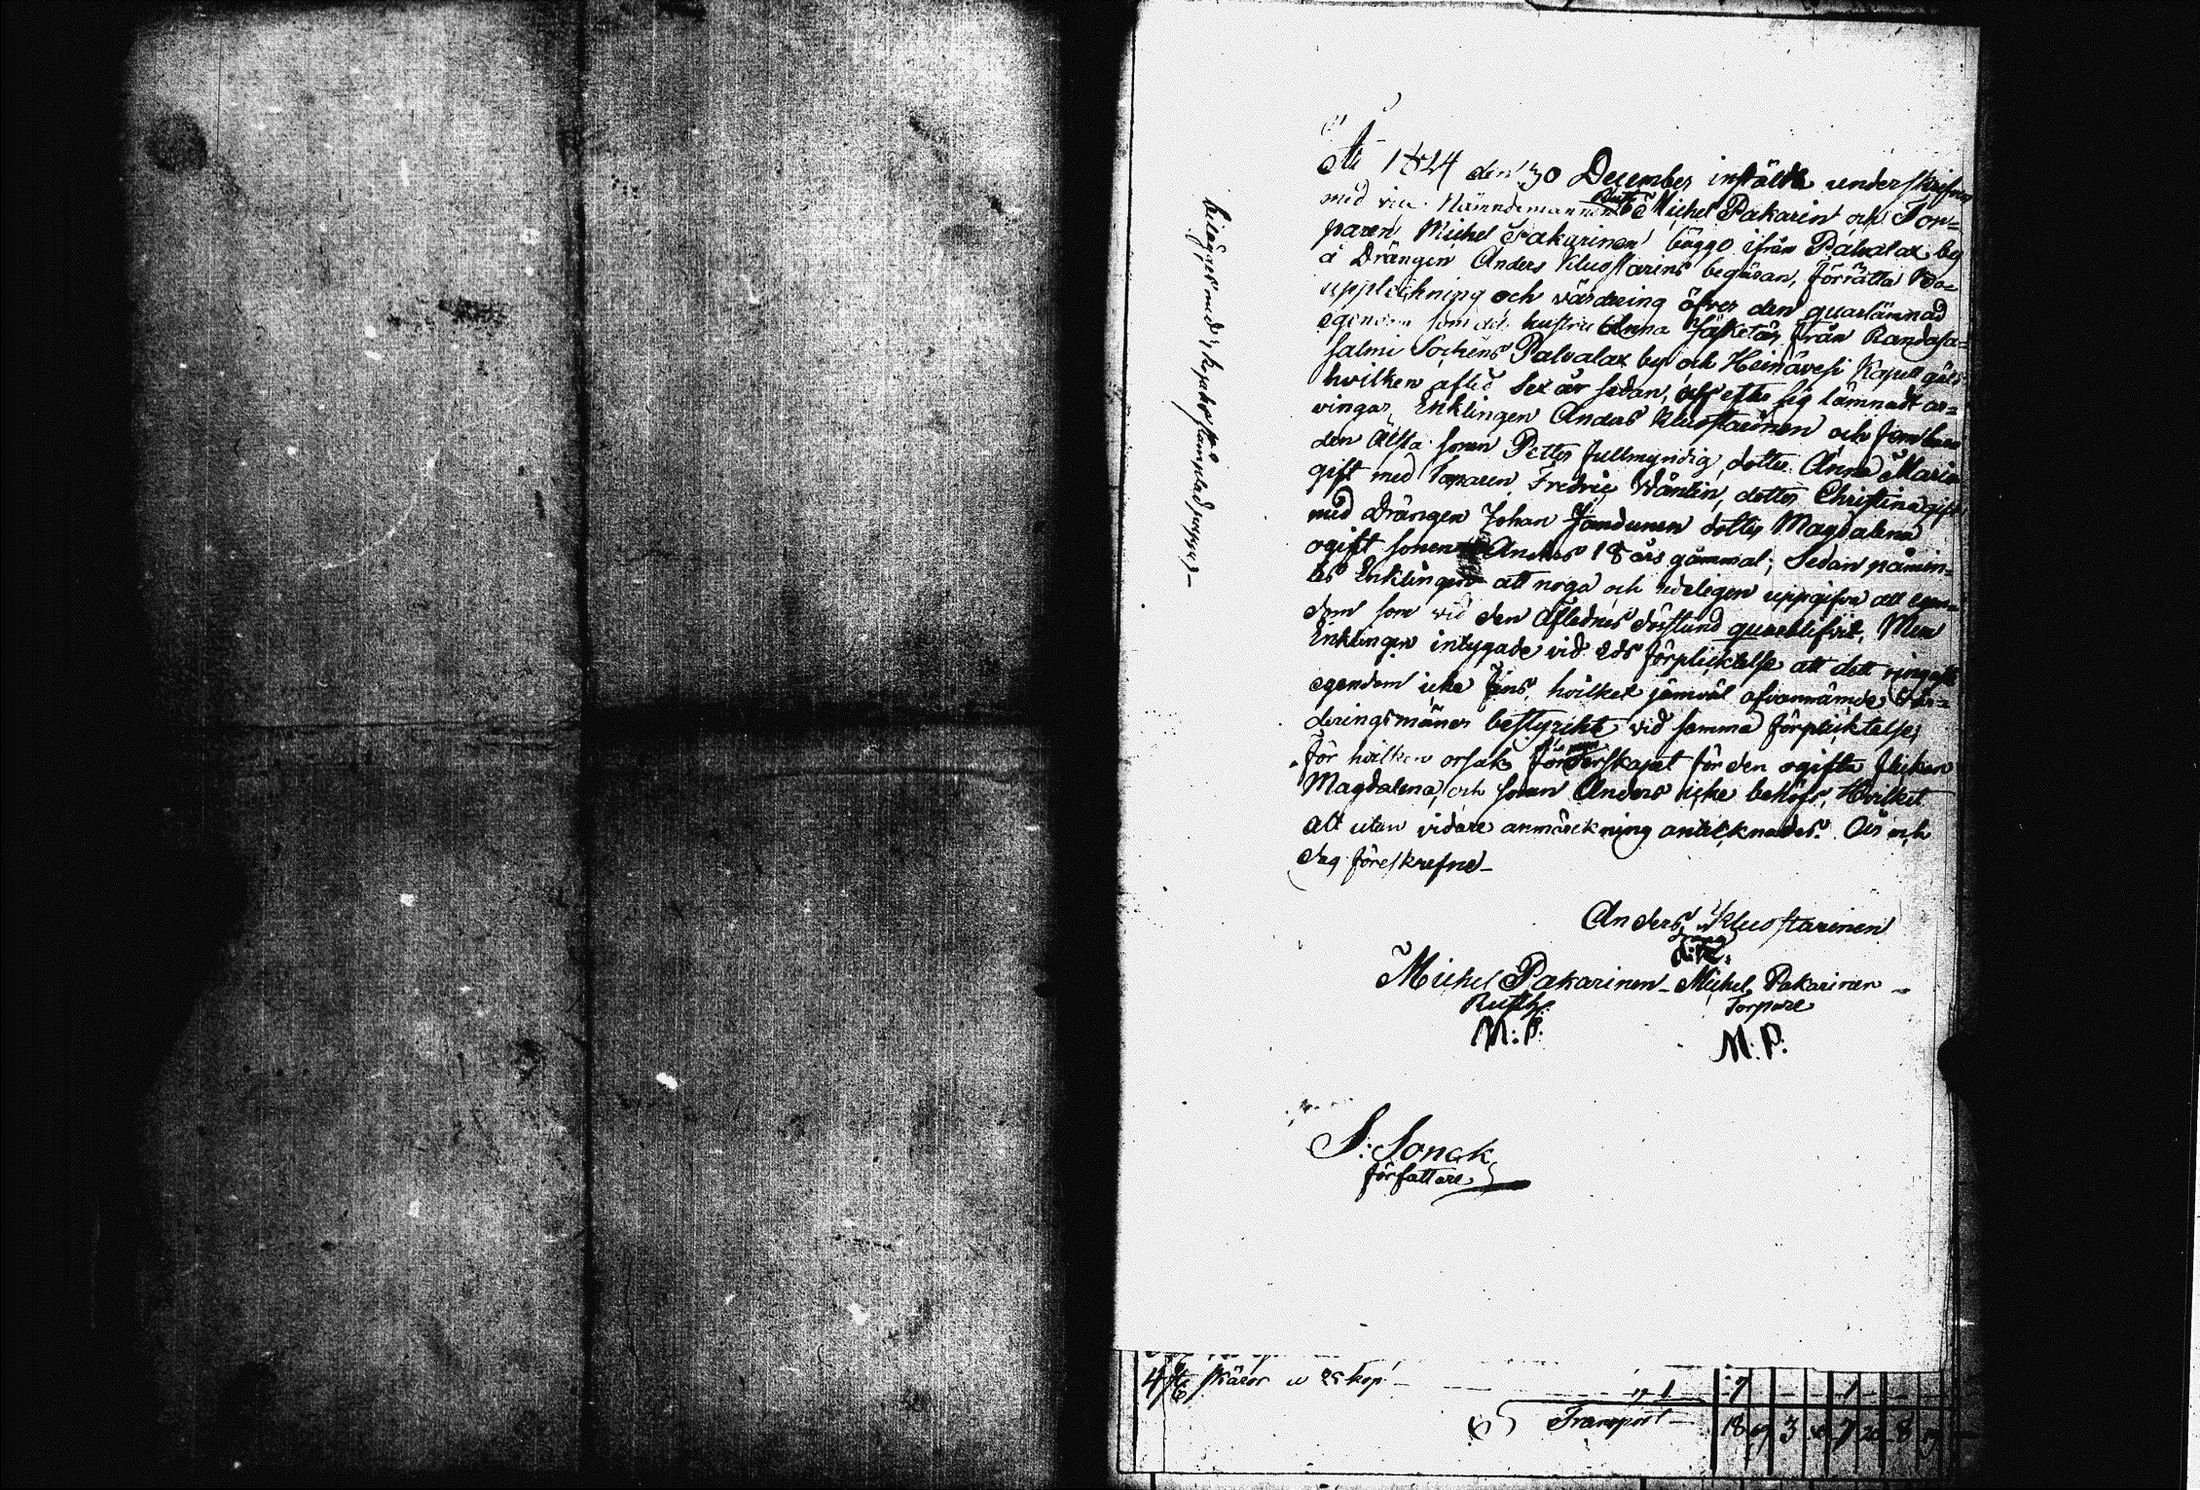 År 1824 den 30 December instälde underskrifven
med vice Nämndemannen Rusth: Michel Pakarin och Tor=
paren Michel Pakarinen bägge ifrån Palvalax by
å Drängen Anders Kluostarins begäran, förrätta Bo=
uppteckning och värdering öfver den quarlämnad
egendom som dess hustru Anna från Randasa=
salmi Sochens Palvalax by och Heinävesi Kapell
hvilken afled sex år sedan, och efter sig lämnadt ar=
vingar, Enklingen Anders Kluostarinen och
den älsta sonen Petter fullmyndig, dotter Anna Maria
gift med Torparen Fredric dotter Christina gift
med Drängen Johan dotter Magdalena
ogift sonen Anders 18 års gammal; Sedan påmin=
tes Enklingen att noga och redeligen uppgifva all egen=
dom som vid den Aflednes dödstund quarblifvit, Men
Enklingen intygade vid Eds förplicktelse att dett ringaste
egendom icke fans, hvilket jämväl ofvannämde Vär=
deringsmäner bestyrckte vid samma förplicktelse;
för hvilken orsak Förmynderskapet för den ogifta flickan
Magdalena, och sonen Anders icke behöfs, Hvilket
allt utan vidare anmärckning antecknades. År och
dag föreskrefne_
Anders Kluostarinen
dräng
Michel Pakarinen_ Michel Pakarinen_
Rusth: Torpare
M: P: M: P:
S: Sonck
författare
belägges med 1 kopeks stämplad papper_
4 st skäror a 25 kop 1 7 1
Transport 18 3 7 8